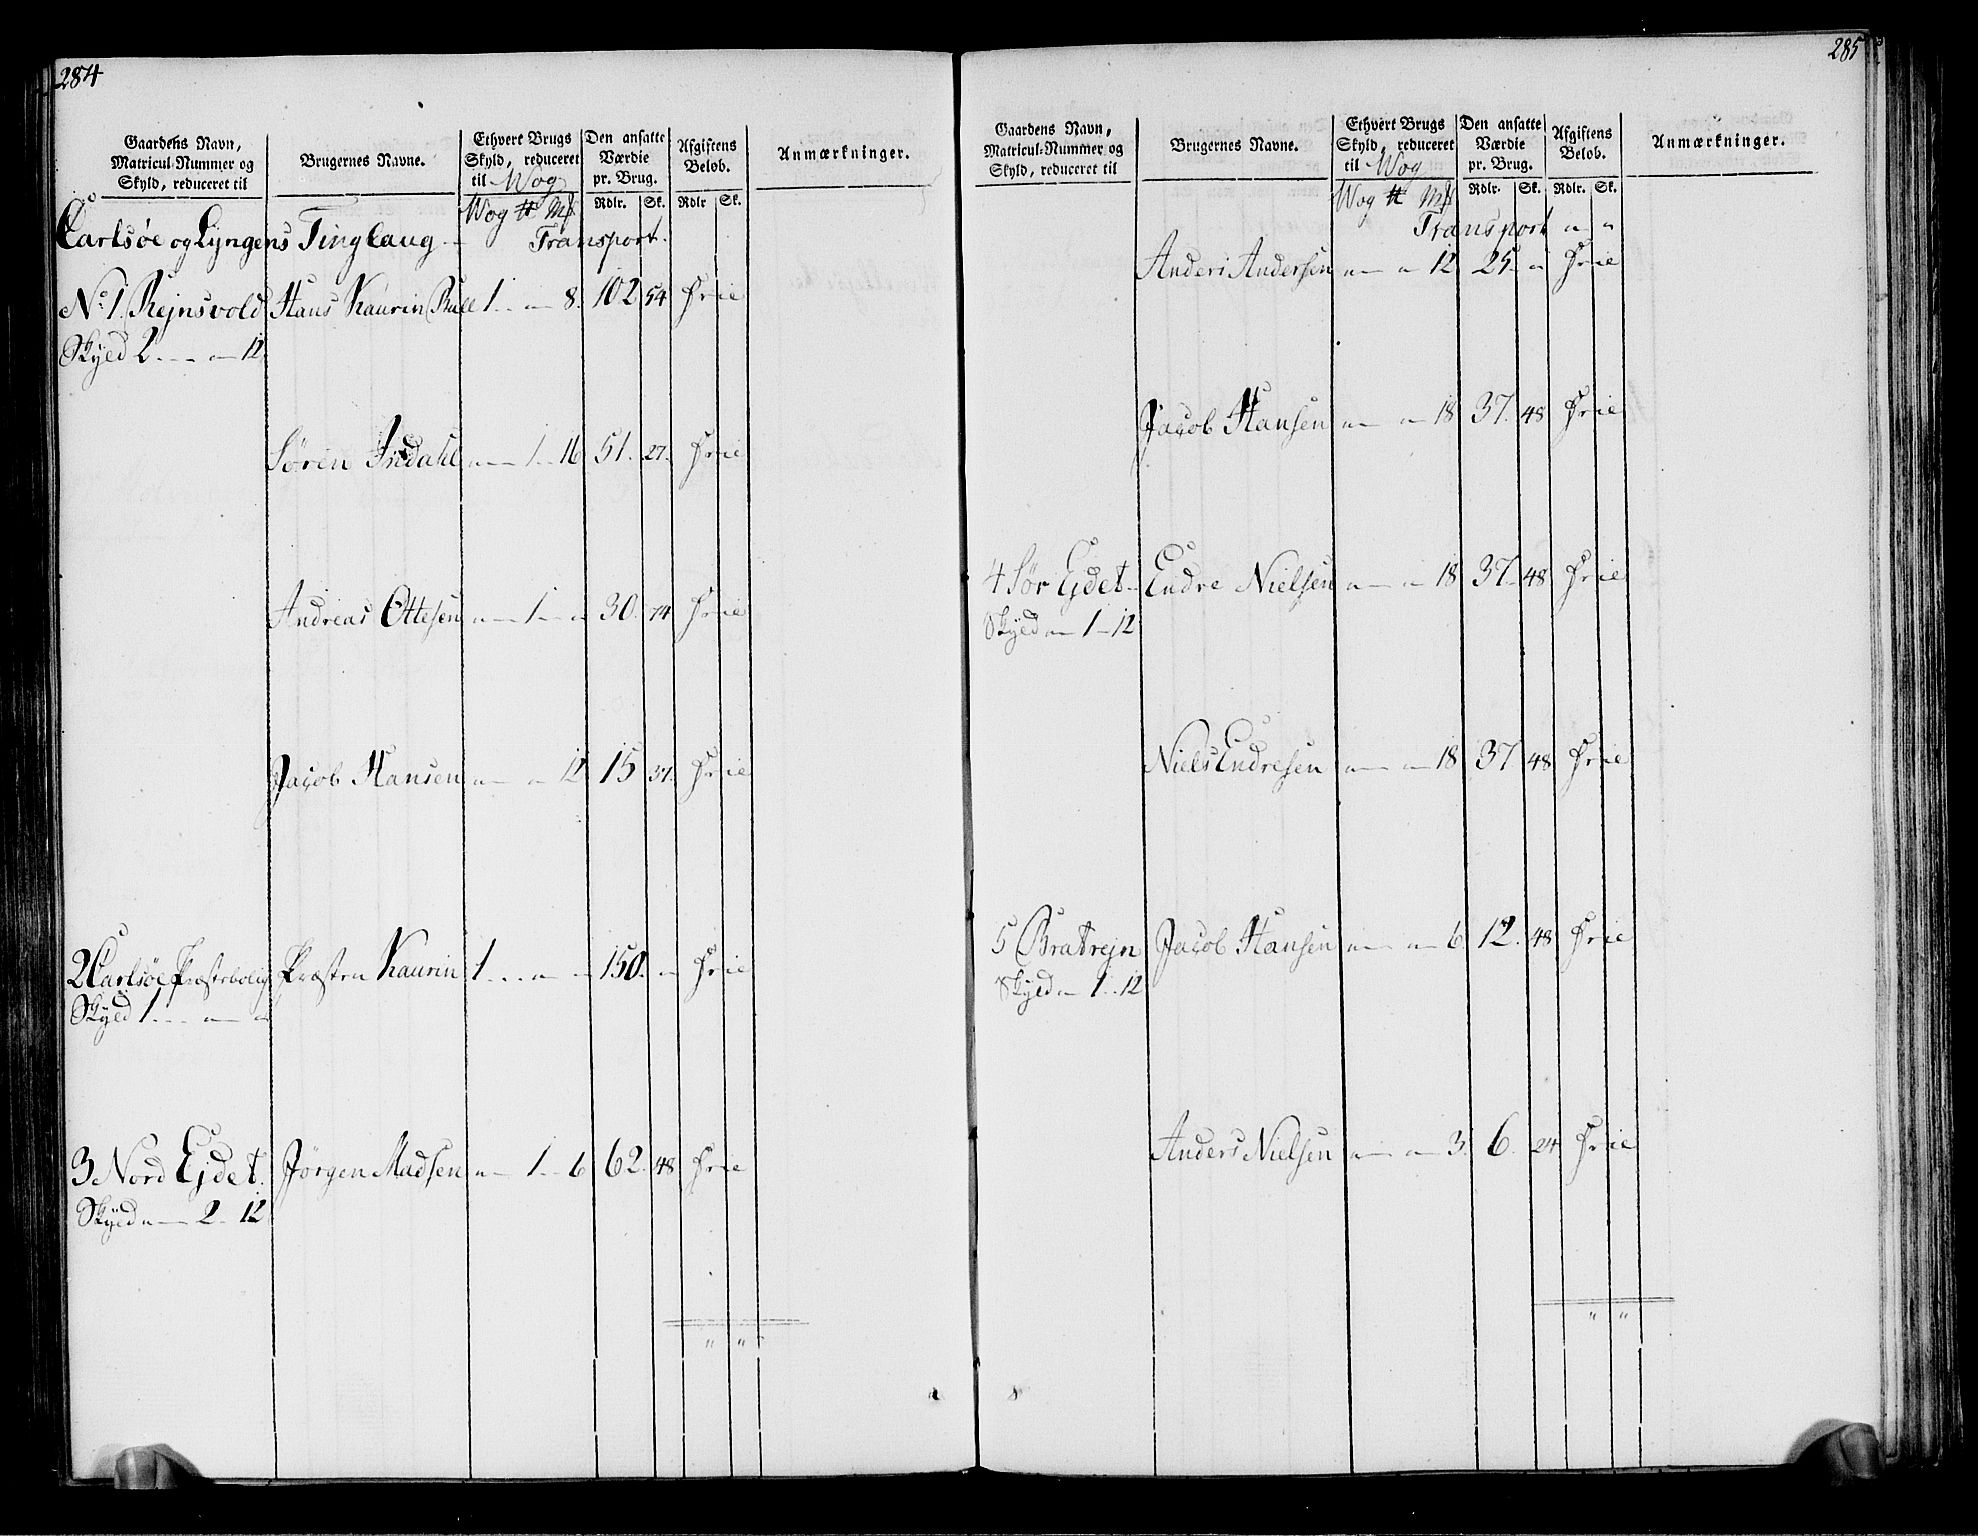 284
Gaardens Navn, Matricul-Nummer og Skyld, reduceret til
Brugernes Navne.
Ethvert Brugs Skyld, reduceret til Wog
Den ansatte Værdie pr. Brug.
Afgiftens Beløb.
Anmærkninger.
Wog ℔ M♃ Rdlr. Sk. Rdlr Sk.
Carlsøe og Lyngens Tinglaug — Transport.
No 1. Rejnsvold Hans Kaurin Bull 1 . . " — 8. 102 54 Frie
Skyld 2 . — . " — 12
Søren Indahl " — 1 — 16 51. 27. Frie
Andreas Ottesen " — 1 — " 30. 74 Frie
Jacob Hansen " — " 12 15 37. Frie
2 Carlsøe Præstebolig Præsten Kaurin 1 . . . " — " 150. " Frie
Skyld 1 . . . " — "
3 Nord Ejdet. Jørgen Madsen " — 1 — 6 62. 48 Frie
Skyld " — 2 — 12
" "
285
Gaardens Navn, Matricul-Nummer og Skyld, reduceret til
Brugernes Navne.
Ethvert Brugs Skyld, reduceret til Wog
Den ansatte Værdie pr. Brug.
Afgiftens Beløb.
Anmærkninger.
Wog ℔ M♃ Rdlr. Sk. Rdlr. Sk.
Transport " — "
Anders Andersen " — " 12 25 — " Frie
Jacob Hansen " — " 18 37. 48 Frie
4 Sør Ejdet — Endre Nielsen " — " 18 37 — 48 Frie
Skyld " — 1 — 12
Niels Endresen " — " 18 37 48 Frie
5 Bratrejn Jacob Hansen " — " 6 12. 48 Frie
Skyld " — 1 . . 12
Anders Nielsen " — " 3. 6. 24 Frie
" "